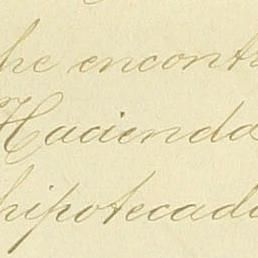 he encont
Hacienda
hipotecad